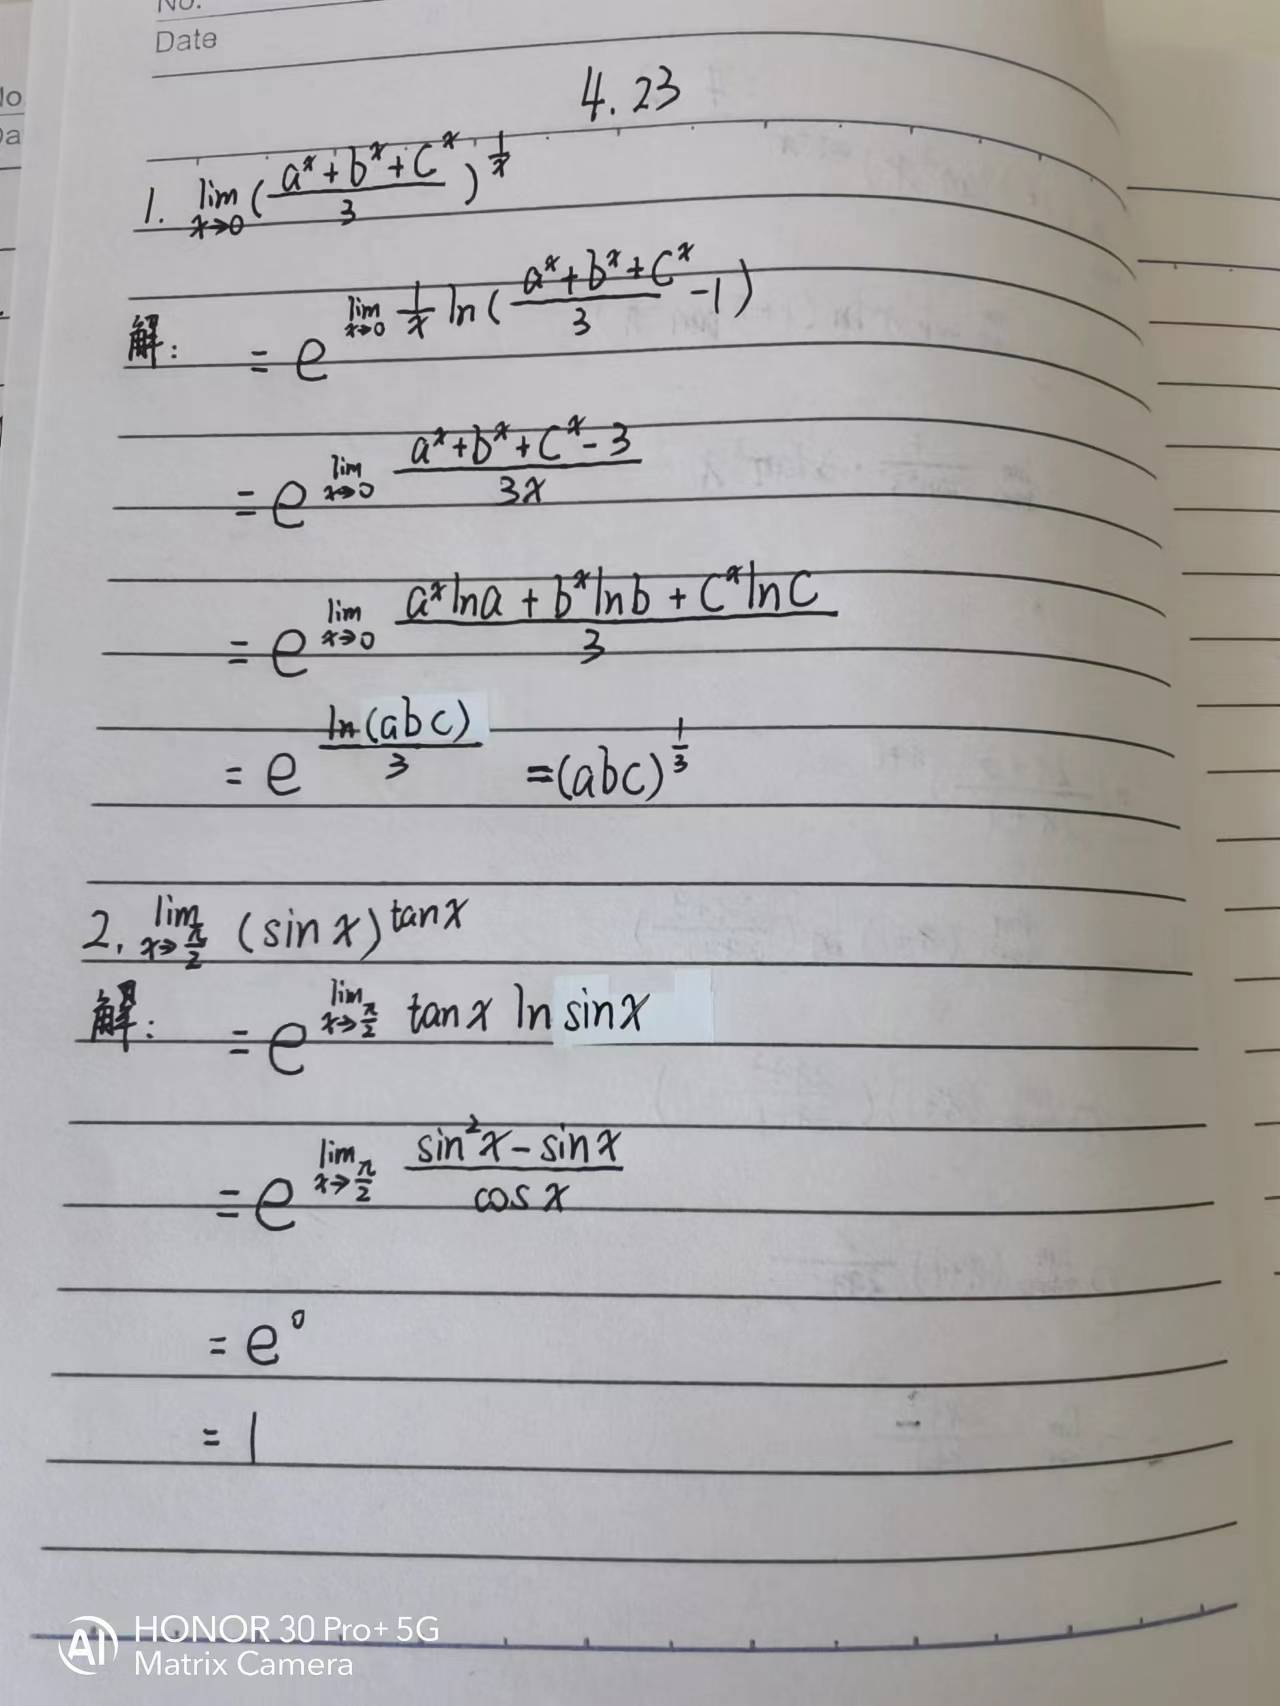 No.
Date
4.23
1. lim x→0 (a^x+b^x+c^x / 3)^(1/x)
解: = e^(lim x→0 1/x ln(a^x+b^x+c^x / 3 -1))
= e^(lim x→0 a^x+b^x+c^x-3 / 3x)
= e^(lim x→0 a^x lna + b^x lnb + c^x lnc / 3)
= e^(ln(abc) / 3) =(abc)^(1/3)
2. lim x→π/2 (sinx)^tanx
解: = e^(lim x→π/2 tanx ln sinx)
= e^(lim x→π/2 sin²x-sinx / cosx)
= e^0
= 1
AI HONOR 30 Pro+ 5G
Matrix Camera